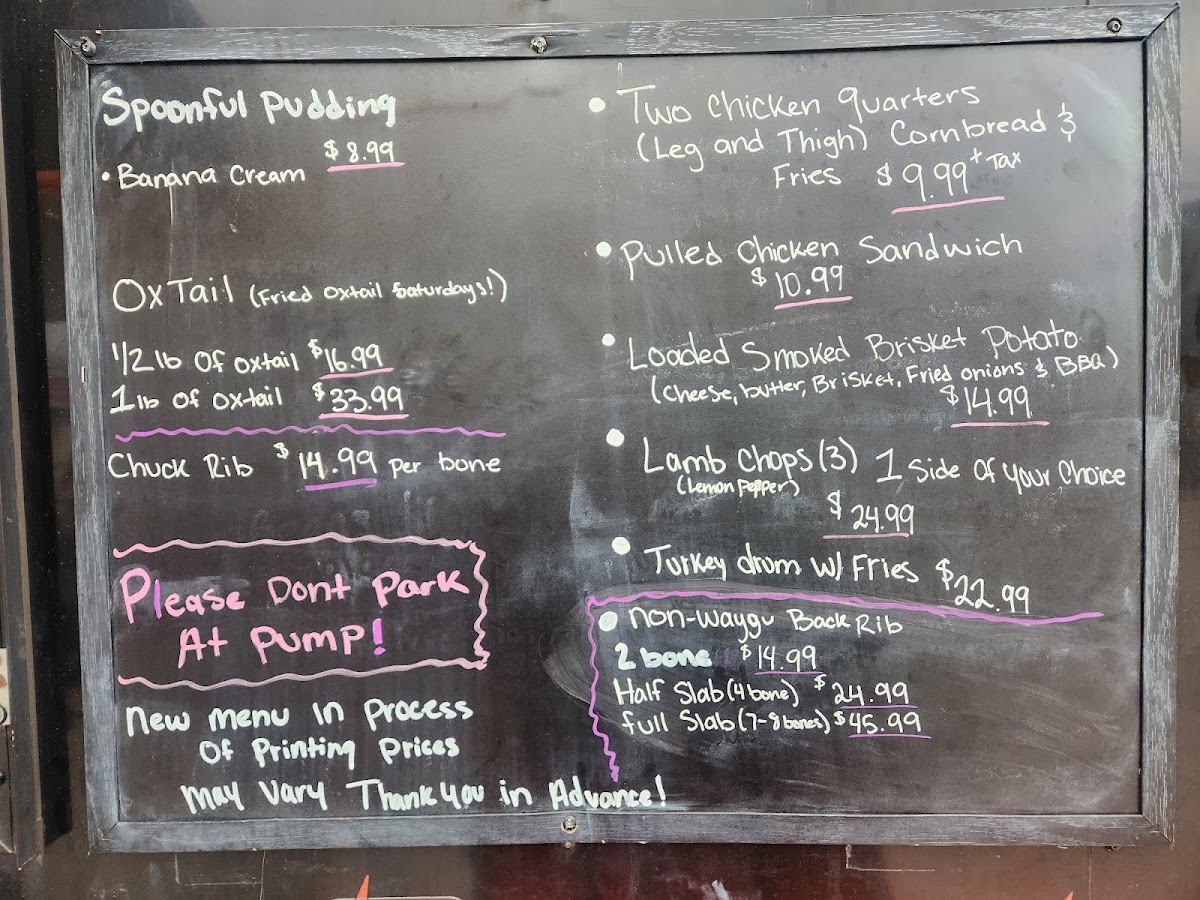 Spoonful Pudding
$8.99
• Banana Cream
OxTail (Fried Oxtail Saturdays!)
1/2 lb Of oxtail $16.99
1 lb of oxtail $33.99
Chuck Rib $14.99 per bone
Please Dont Park
At Pump!
New menu in Process
Of Printing Prices
May Vary Thank you in Advance!
• Two Chicken Quarters
(Leg and Thigh) Cornbread &
Fries $9.99 + Tax
• Pulled Chicken Sandwich
$10.99
• Loaded Smoked Brisket Potato
(Cheese, butter, Brisket, Fried onions & BBQ)
$14.99
• Lamb Chops (3) 1 Side Of Your Choice
(Lemon Pepper)
$24.99
• Turkey drum w/ Fries $22.99
• Non-Waygu Back Rib
2 bone $14.99
Half Slab (4 bone) $24.99
Full Slab (7-8 bones) $45.99